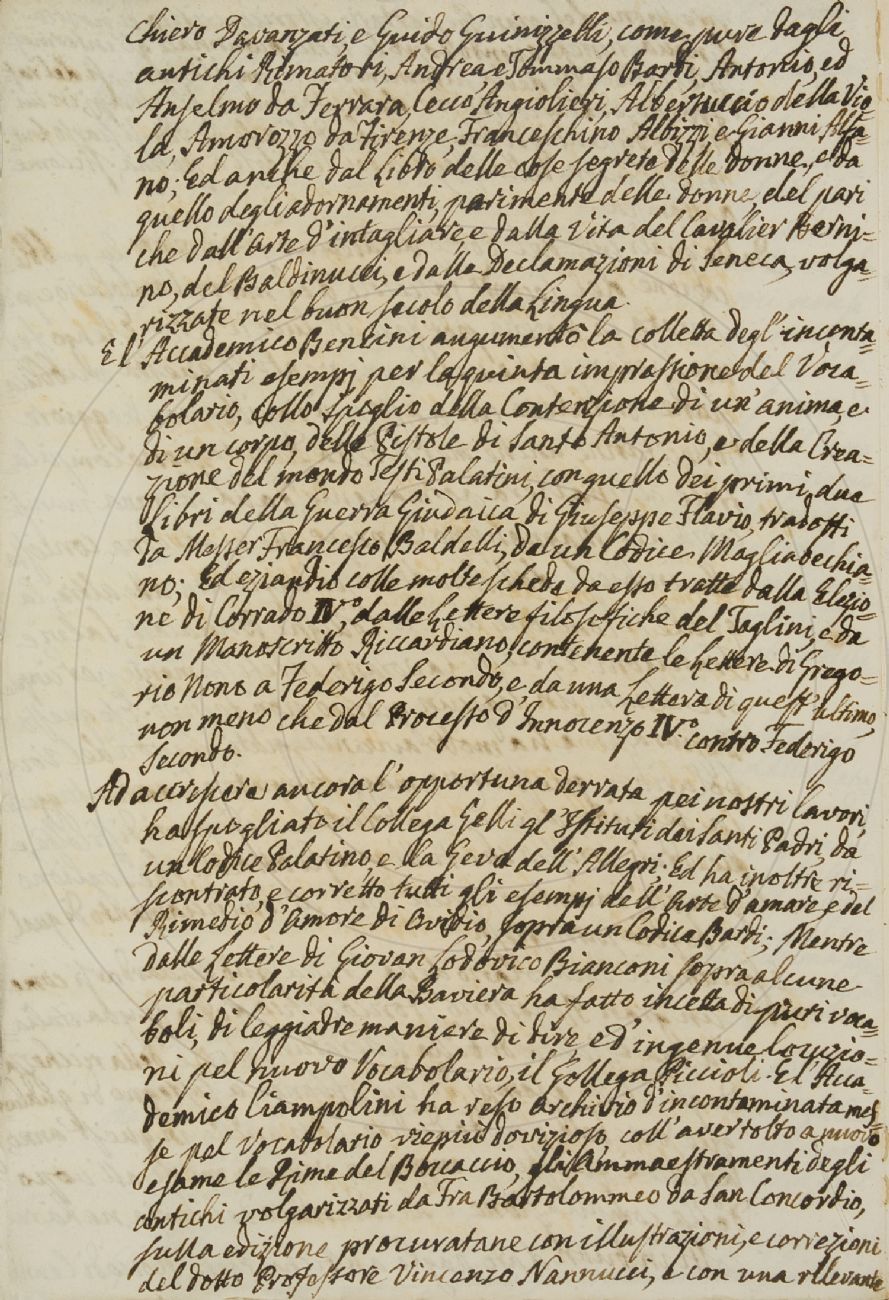 chiero Davanzati, e Guido Guinizzelli, come pure dagli
antichi Rimatori, Andrea e Tommaso Bardi, Antonio, ed
Anselmo da Ferrara, Cecco Angiolieri, Albertuccio della Vio=
la, Amorozzo da Firenze, Franceschino Albizzi e Gianni Alfa=
no; Ed anche dal Libro delle cose segrete delle donne, e da
quello degli adornamenti parimente delle donne, del pari
che dall'Arte d'intagliare e dalla Vita del Cavalier Berni=
no, del Baldinucci, e dalle Declamazioni di Seneca, volga=
rizzate nel buon secolo della Lingua.
E l'Accademico Bencini augumentò la colletta degl'inconta=
minati esempj per la quinta impressione del Voca=
bolario, collo spoglio della Contenzione di un'anima, e
di un corpo, delle Pistole di Santo Antonio, e della Crea=
zione del mondo Testi Palatini, con quello dei primi due
Libri della Guerra Giudaica di Giuseppe Flavio, tradotti
da Messer Francesco Baldelli, da un Codice Magliabechia=
no; Ed eziandio colle molte schede da esso tratte dalla Elezio=
ne di Corrado IV.º, dalle Lettere filosofiche del Taglini, e da
un Manoscritto Riccardiano, contenente le Lettere di Grego=
rio Nono a Federigo Secondo, e da una Lettera di quest'ultimo,
non meno che dal Processo d'Innocenzo IV.º contro Federigo
Secondo.
Ad accrescere ancora l'opportuna derrata pei nostri lavori,
ha spogliato il Collega Gelli gl'Istituti dei Santi Padri, da
un Codice Palatino, e la Geva dell'Allegri; Ed ha inoltre ri=
scontrato, e corretto tutti gli esempj dell'Arte d'amare, e del
Rimedio d'Amore di Ovidio, sopra un Codice Bardi; Mentre
dalle Lettere di Giovan Lodovico Bianconi sopra alcune
particolarità della Baviera ha fatto incetta di puri voca=
boli, di leggiadre maniere di dire, e d'ingenue locuzio=
ni pel nuovo Vocabolario, il Collega Piccioli. E l'Acca=
demico Ciampolini ha reso archivio d'incontaminata mes=
se pel Vocabolario viepiù dovizioso, coll'aver tolto a nuovo
esame le Rime del Boccaccio, gli Ammaestramenti degli
antichi volgarizzati da Fra Bartolommeo da San Concordio,
sulla edizione procuratane con illustrazioni, e correzioni
del dotto Professore Vincenzo Nannucci, e con una rilevante